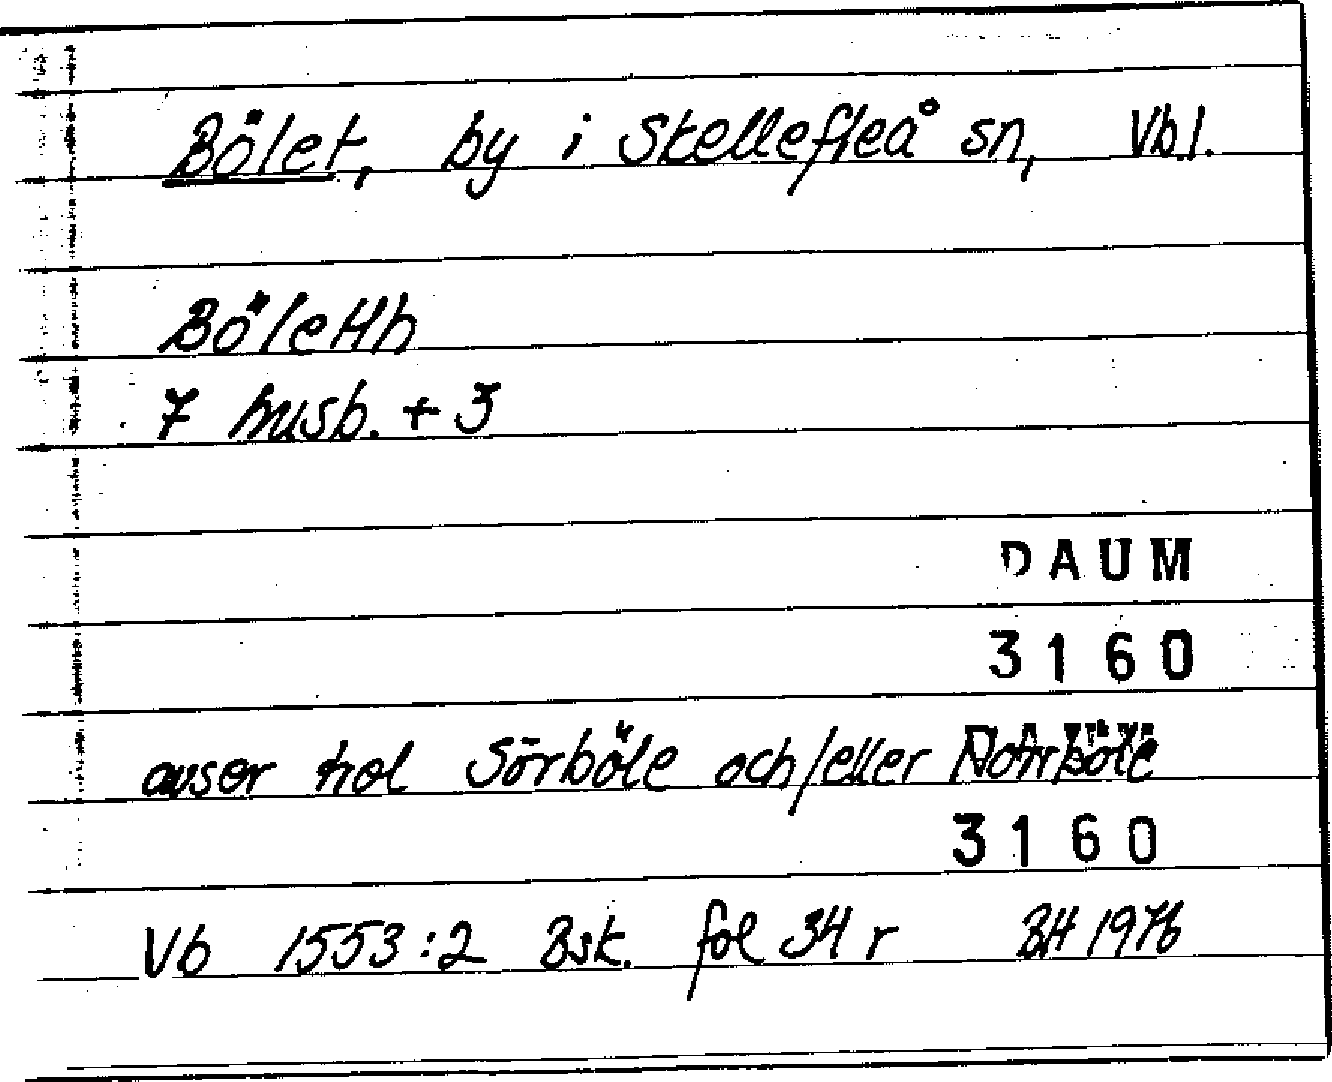 Bölet, by i Skellefteå sn, Vb.l.
Böletth
7 husb. + 3
DAUM
3160
avser trol Sörböle och/eller Norrböle
3160
Vb 1553:2 Bsk. fol 34 r BH 1976